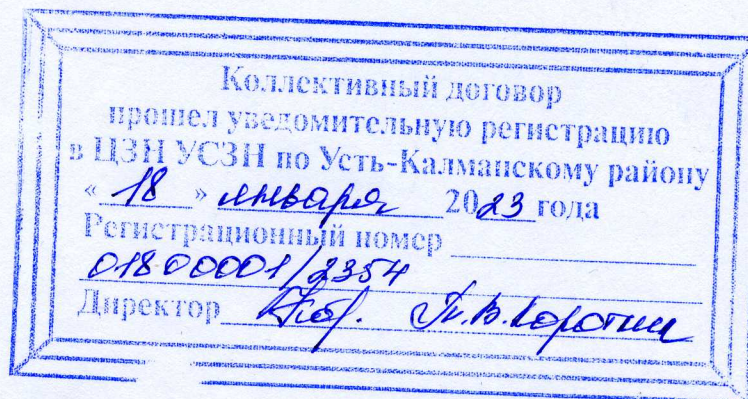 Коллективный договор
прошел уведомительную регистрацию
в ЦЗН УСЗН по Усть-Калманскому району
« 18 » января 2023 года
Регистрационный номер
01800001/2354
Директор